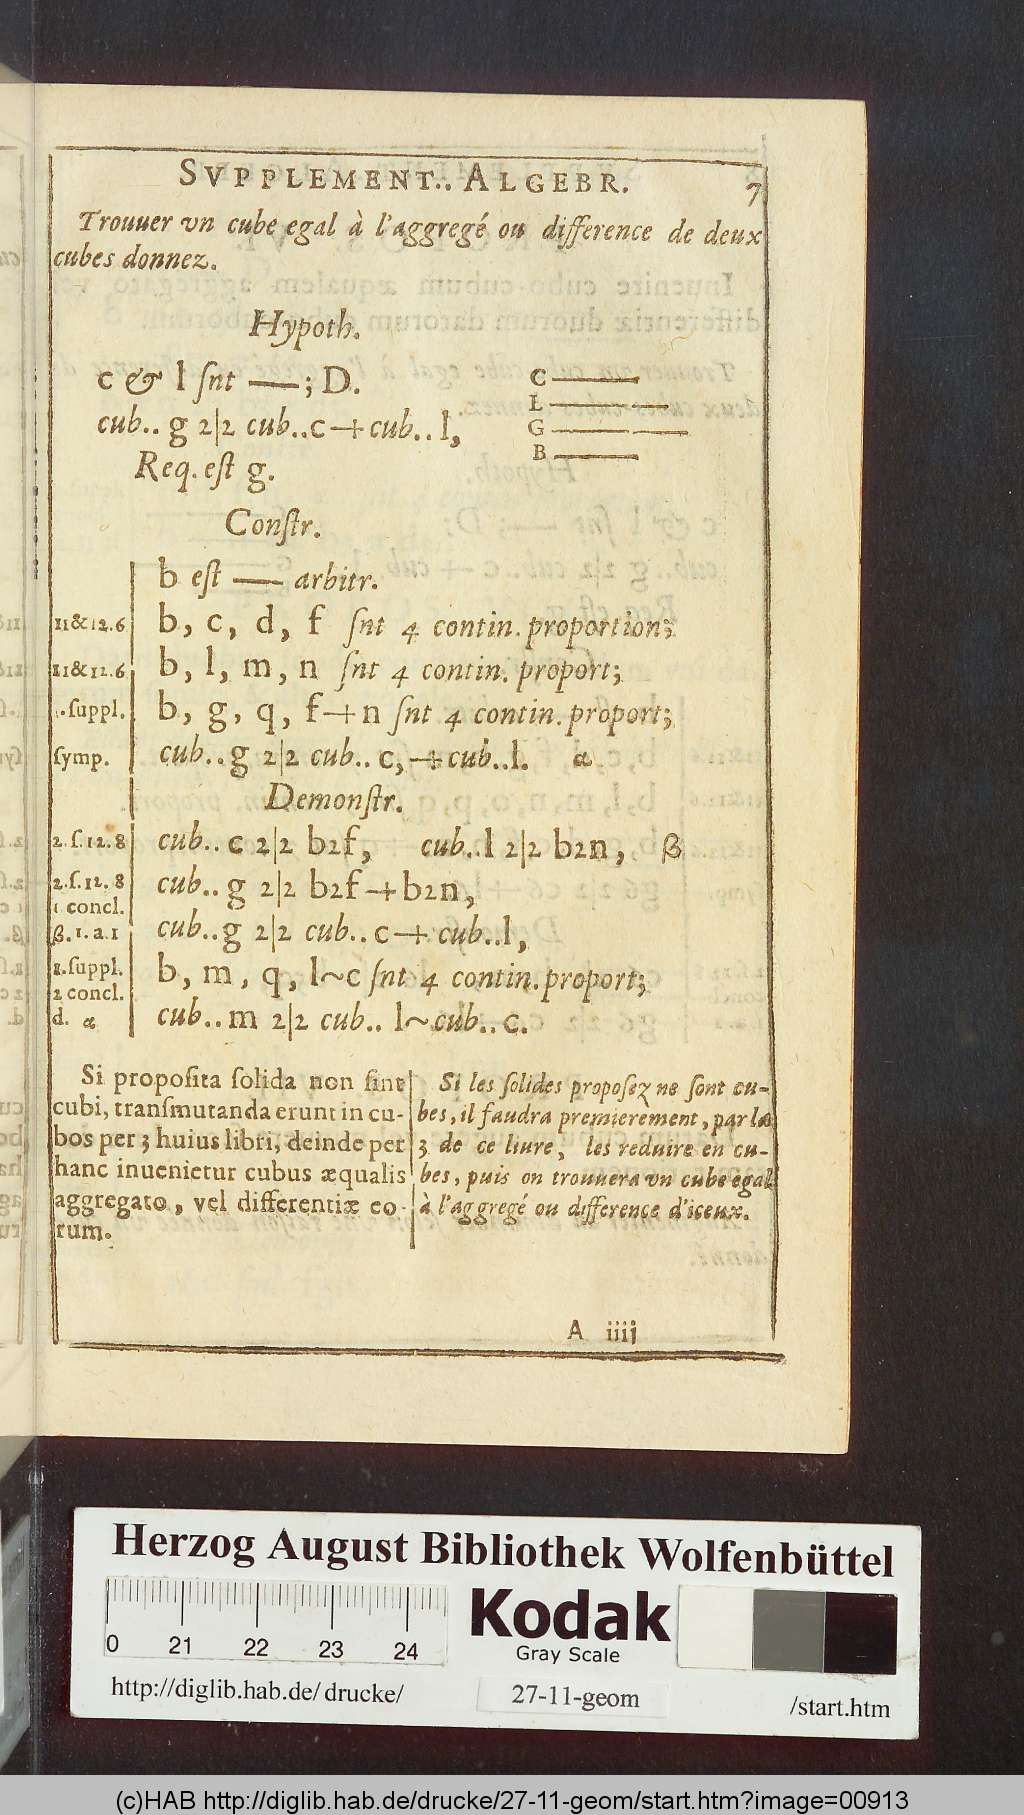 SVPPLEMENT.. ALGEBR. 7
Trouuer vn cube egal à l'aggregé ou difference de deux
cubes donnez.
Hypoth.
c & l ſnt —; D.
cub.. g 2|2 cub..c+cub..l,
Req. eſt g.
C
L
G
B
Conſtr.
b eſt — arbitr.
11&12.6 b, c, d, f ſnt 4 contin. proportion;
11&12.6 b, l, m, n ſnt 4 contin. proport;
.ſuppl. b, g, q, f+n ſnt 4 contin. proport;
ſymp. cub..g 2|2 cub..c,+cub..l. α
Demonſtr.
2.ſ.12.8 cub..c 2|2 b2f, cub..l 2|2 b2n, β
2.ſ.12.8 cub..g 2|2 b2f+b2n,
1 concl.
β.1.a.1 cub..g 2|2 cub..c+cub..l,
1.ſuppl. b, m, q, l~c ſnt 4 contin. proport;
2 concl.
d. α cub..m 2|2 cub..l~cub..c.
Si propoſita ſolida non ſint
cubi, tranſmutanda erunt in cu-
bos per 3 huius libri, deinde per
hanc inuenietur cubus æqualis
aggregato, vel differentiæ eo-
rum.
Si les ſolides propoſez ne ſont cu-
bes, il faudra premierement, par la
3 de ce liure, les reduire en cu-
bes, puis on trouuera vn cube egal
à l'aggregé ou difference d'iceux.
A iiij
Herzog August Bibliothek Wolfenbüttel
0 21 22 23 24
Kodak
Gray Scale
http://diglib.hab.de/drucke/ 27-11-geom /start.htm
(c)HAB http://diglib.hab.de/drucke/27-11-geom/start.htm?image=00913